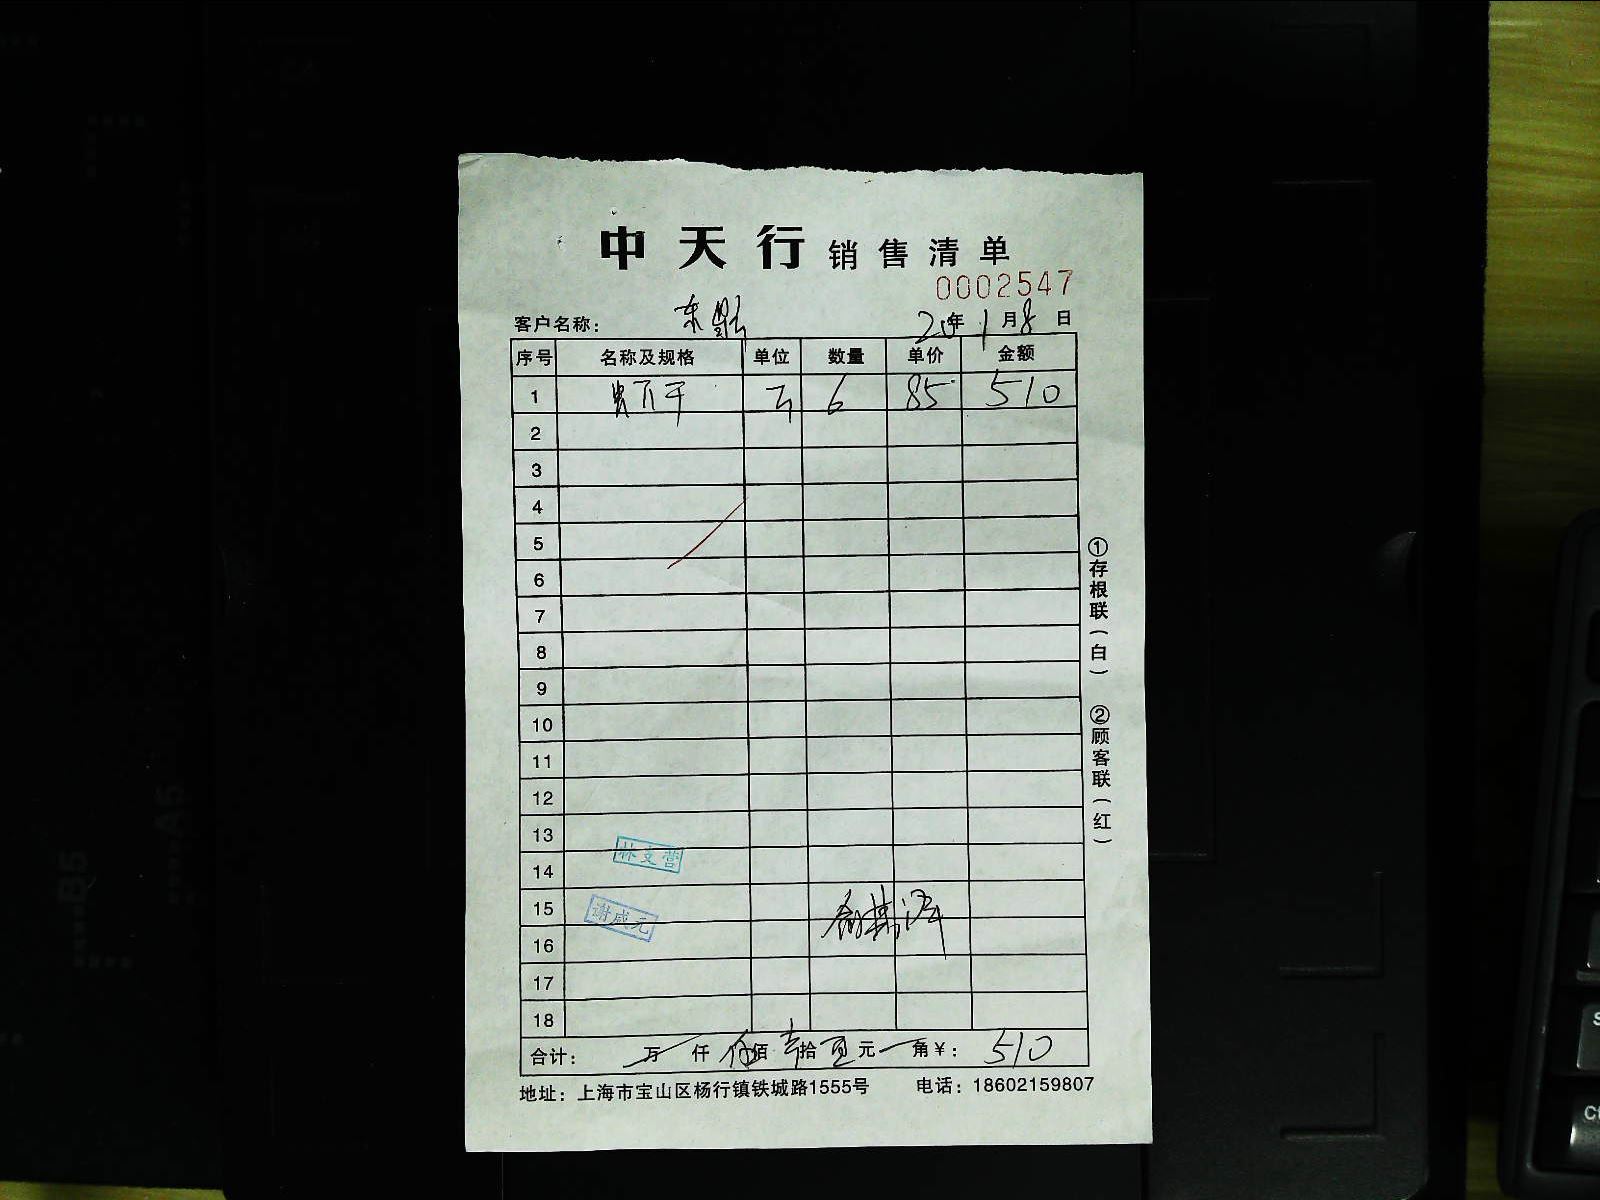 中天行 销售清单
0002547
客户名称： 20年1月8日
序号 名称及规格 单位 数量 单价 金额
1 6 85 510
2
3
4
5
6
7
8
9
10
11
12
13
14
15
16
17
18
林文营
谢威元
合计： 万 仟 伍佰 壹拾 元 角¥： 510
地址：上海市宝山区杨行镇铁城路1555号 电话：18602159807
①存根联（白）
②顾客联（红）